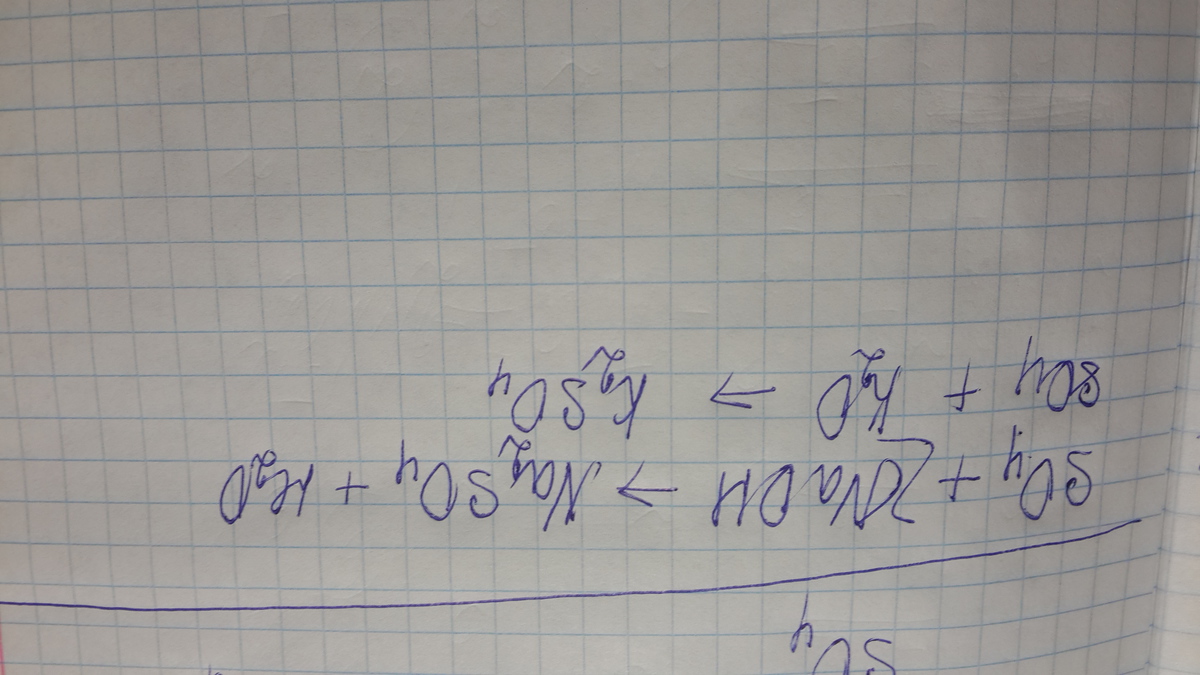 SO₄
SO₄ + 2NaOH → Na₂SO₄ + H₂O
SO₄ + K₂O → K₂SO₄